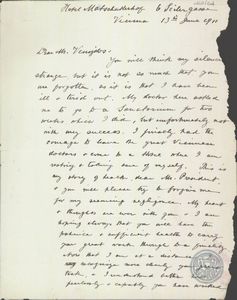 Hotel Matschakerhof 6 Seilergasse
Vienna 13th June 1911
Dear Mr. Venizelos -
You will think my silence
strange but it is not so much that you
are forgotten, as it is that I have been
ill & tired out. My doctor here ordered
me to go to a Sanatorium for two
weeks which I did, but unfortunately not
with any success. I finally had the
courage to leave the great Viennese
doctors & came to a Hotel where I am
resting & taking care of myself. This is
my story of health, dear Mr. President
& you will please try to forgive me
for my seeming negligence. My heart
& thoughts are ever with you & I am
hoping always that you will have the
patience & sufficient health to carry
your great work through to a finality
Now that I am at a distance
recognize more clearly
task, & I understand better
patiently & capably you have worked